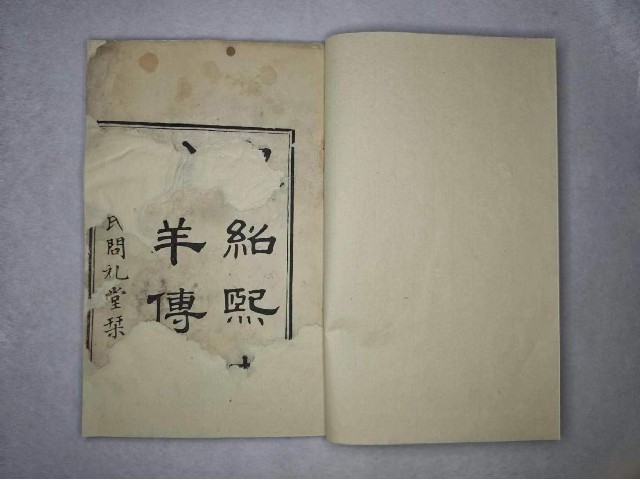 紹熙
羊傳
氏問礼堂栞